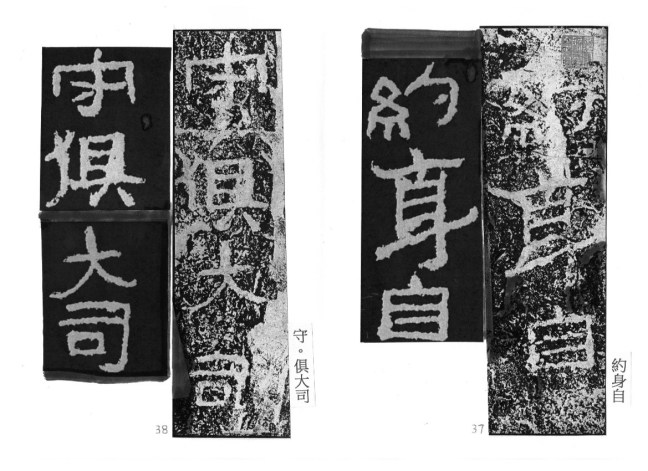 約身自
約身自
約身自
37
守俱大司
守俱大司
守。俱大司
38